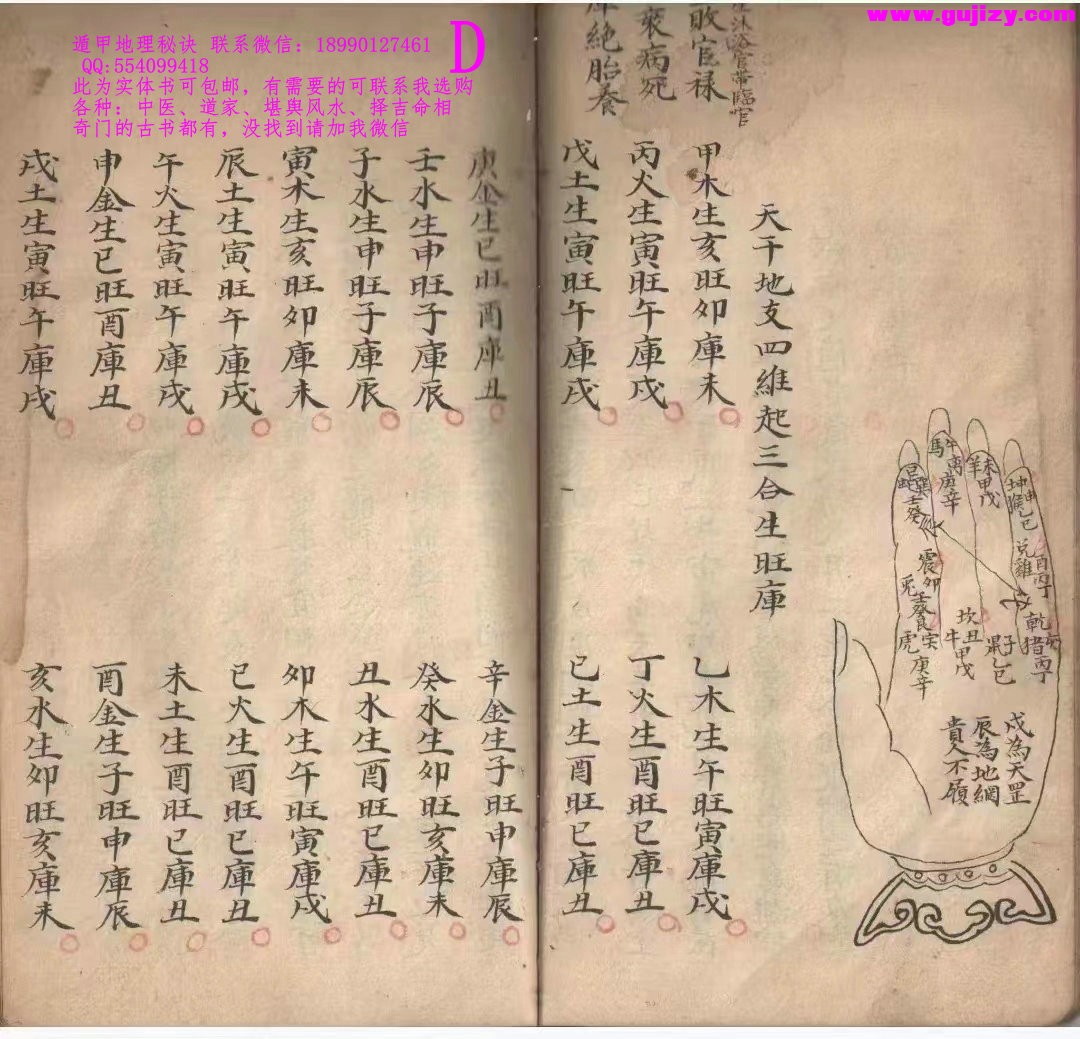 www.gujizy.com
遁甲地理秘诀 联系微信：18990127461
QQ:554099418
此为实体书可包邮，有需要的可联系我选购
各种：中医、道家、堪舆风水、择吉命相
奇门的古书都有，没找到请加我微信
D
沐浴官帶臨官
敗官禄
衰病死
絶胎養
坤申
猴乙巳
兌酉
雞丙丁
乾亥
猪丙丁
未
羊甲戊
午
馬離庚辛
巽
壬癸
震卯
兎壬癸
艮寅
虎庚辛
坎丑
牛甲戊
子
鼠乙巳
戌為天罡
辰為地網
貴人不履
天干地支四維起三合生旺庫
甲木生亥旺卯庫未
乙木生午旺寅庫戌
丙火生寅旺午庫戌
丁火生酉旺巳庫丑
戊土生寅旺午庫戌
己土生酉旺巳庫丑
庚金生巳旺酉庫丑
辛金生子旺申庫辰
壬水生申旺子庫辰
癸水生卯旺亥庫未
子水生申旺子庫辰
丑水生酉旺巳庫丑
寅木生亥旺卯庫未
卯木生午旺寅庫戌
辰土生寅旺午庫戌
巳火生酉旺巳庫丑
午火生寅旺午庫戌
未土生酉旺巳庫丑
申金生巳旺酉庫丑
酉金生子旺申庫辰
戌土生寅旺午庫戌
亥水生卯旺亥庫未